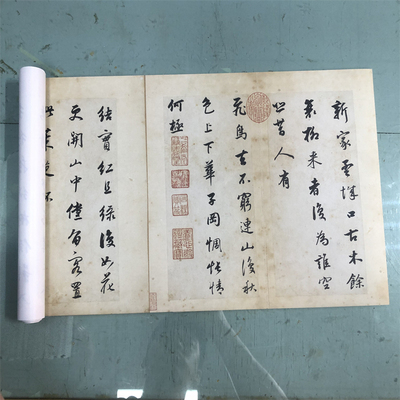 新家孟城口古木餘
衰柳来者復為誰空
悲昔人有
飛鳥去不窮連山復秋
色上下華子岡惆悵情
何極
結實紅且緑復如花
更開山中儻留客置